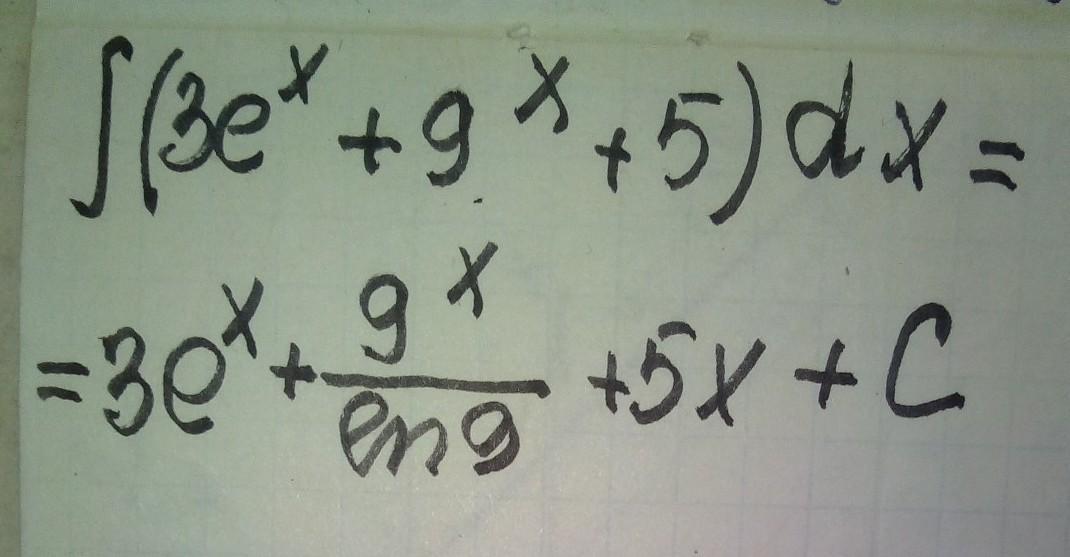 ∫(3e^x + 9^x + 5)dx =
= 3e^x + 9^x/ln9 + 5x + C